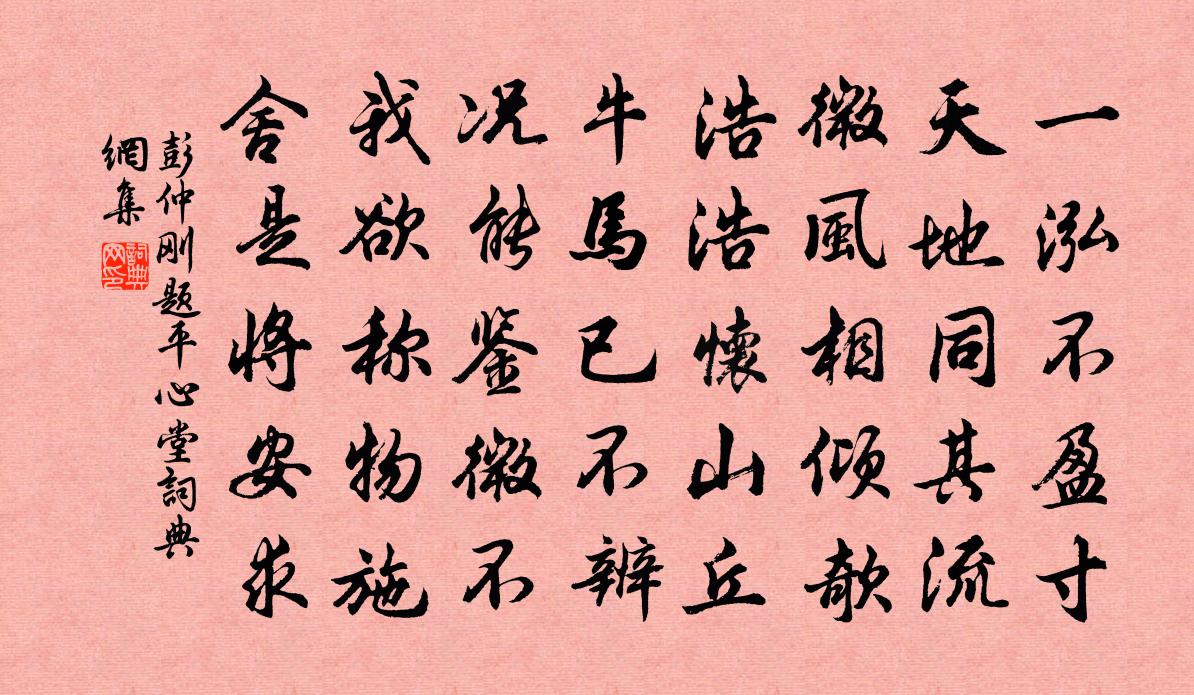 一泓不盈寸
天地同其流
微風相傾欹
浩浩懷山丘
牛馬已不辨
况能鉴微不
我欲称物施
舍是将安求
彭仲刚题平心堂詞典
網集
詞典网印